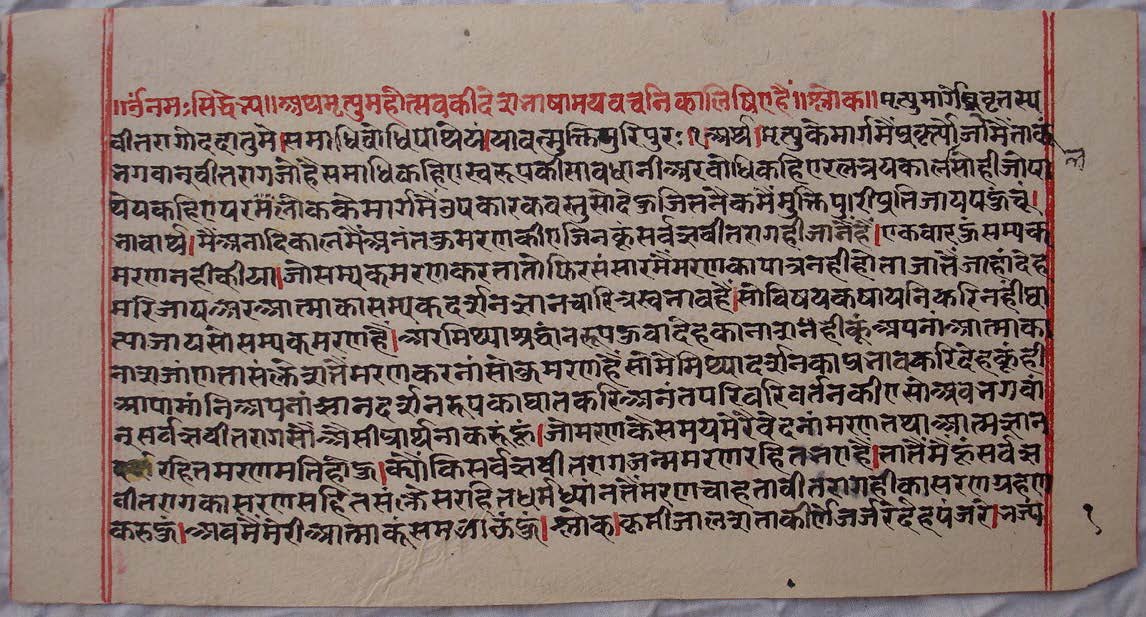 ॥ॐनमःसिद्धेभ्य॥अथमृत्युमहोत्सवकीदेशभाषामयवचनिकालिषिएहै॥श्लोक॥मृत्युमार्गेप्रवृतस्य
वीतरागोददातुमे।समाधिबोधिपाथेयं।यावत्मुक्तिपुरिपुरः।१अर्थ।मृत्युकेमार्गमैंप्रवृर्त्योजोमैंताकूं
भगवानवीतरागजोहैसमाधिकहिएस्वरूपकीसावधानीअरबोधिकहिएरत्नत्रयकालभसोहीजोपा
थेयकहिएपरलोककेमार्गमैंउपकारकवस्तुसोदेऊजितनैकमैंमुक्तिपुरीप्रतिजायपहुंचूं।
भावार्थ।मैंअनादिकालमैंअनंतकुमरणकीएजिनकूसर्वज्ञवीतरागहीजानैहै।एकवारहुंसम्यक्
मरणनहीकीया।जोसम्यकमरणकरतातोफिरसंसारमैंमरणकापात्रनहीहोताजातैंजोहांदेह
मरिजायअरआत्माकासम्यकदर्शनज्ञानचारित्रस्वभावहै।सोविषयकषायनिकरिनहींघा
त्याजायसोसम्यकमरणहै।अरमिथ्याश्रद्धांनरूपहुवादेहकानाशनैहीकूंअपनांआत्माक
नाशजांणतासंक्लेशतैंमरणकरनांसोकुमरणहैसोमैंमिथ्यादर्शनकाप्रभावकरिदेहकूंही
आपामांनिअपनांज्ञानदर्शनरूपकाघातकरिअनंतपरिवरिवर्तनकीएसोअबभगवां
नसर्वज्ञवीतरागसौंअैसीप्रार्थनाकरूंहूं।जोमरणकैसमयमेरैवेदनांमरणतथाआत्मज्ञान
रहितमरणमतिहोऊ।क्योंकिसर्वज्ञवीतरागजन्ममरणरहितभएहै।तातैंमैंहूंसर्वज्ञ
वीतरागकासरणसहितसंक्लेसरहितधर्मध्यांनतैंमरणचाहतावीतरागहीकासरणग्रहण
करूहूं।अबमैंमेरीआत्माकूंसमझाऊंहूं।श्लोक।कृमीजालशताकीर्णेजर्जरेदेहपंजरे।भज्य
१